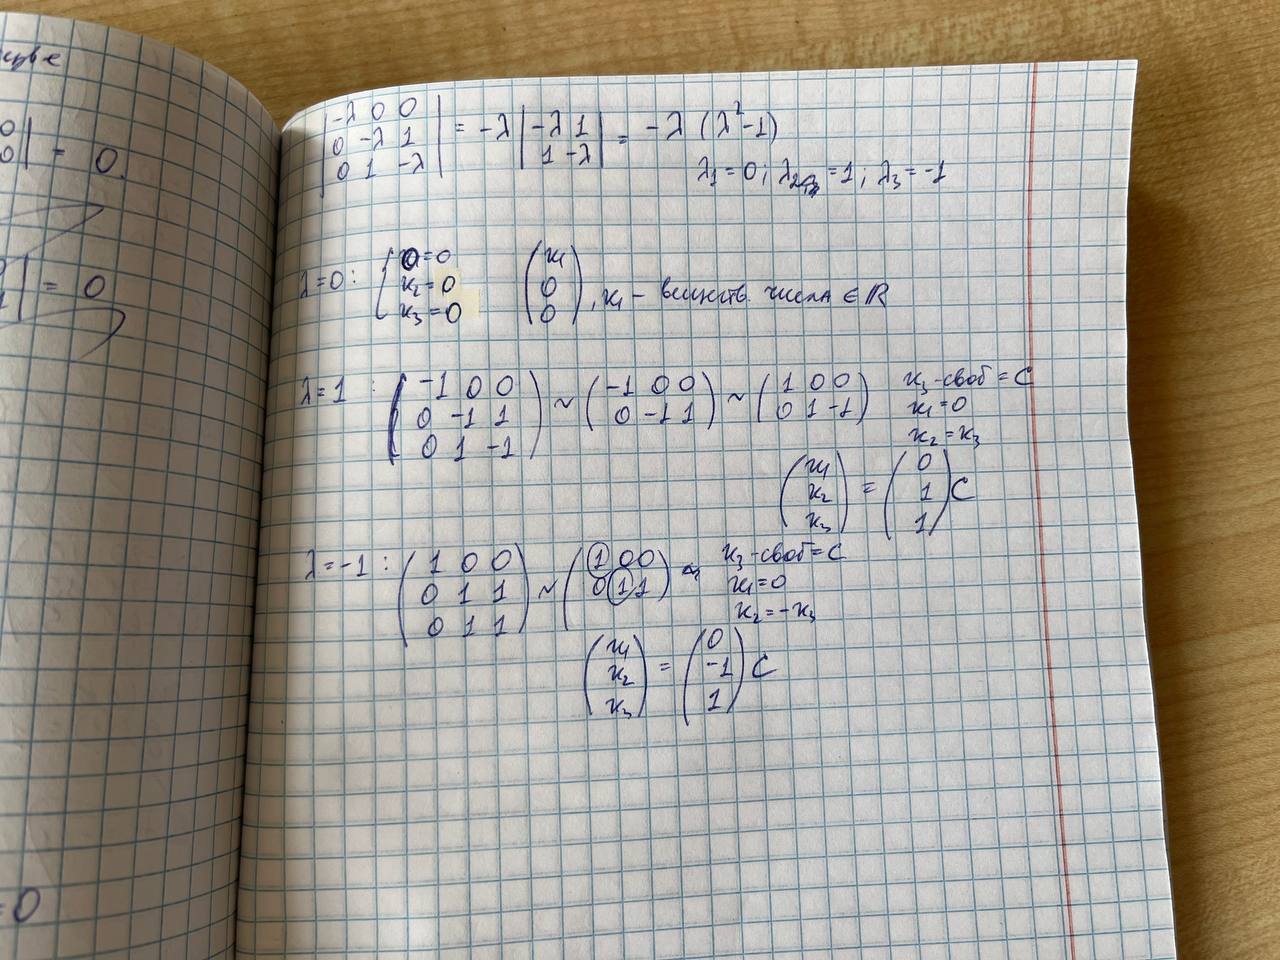 0|
0| = 0.
| = 0
= 0
|-λ 0 0|
|0 -λ 1| = -λ |-λ 1| = -λ (λ²-1)
|0 1 -λ| |1 -λ|
λ₁ = 0; λ₂ = 1; λ₃ = -1
λ=0: { 0 = 0
x₂ = 0
x₃ = 0
(x₁
0
0), x₁ - веществ. числа ∈ ℝ
λ=1 : (-1 0 0
0 -1 1
0 1 -1) ~ (-1 0 0
0 -1 1) ~ (1 0 0
0 1 -1)
x₃-своб = C
x₁ = 0
x₂ = x₃
(x₁
x₂
x₃) = (0
1
1) C
λ=-1 : (1 0 0
0 1 1
0 1 1) ~ (1 0 0
0 1 1)
x₃-своб = C
x₁ = 0
x₂ = -x₃
(x₁
x₂
x₃) = (0
-1
1) C